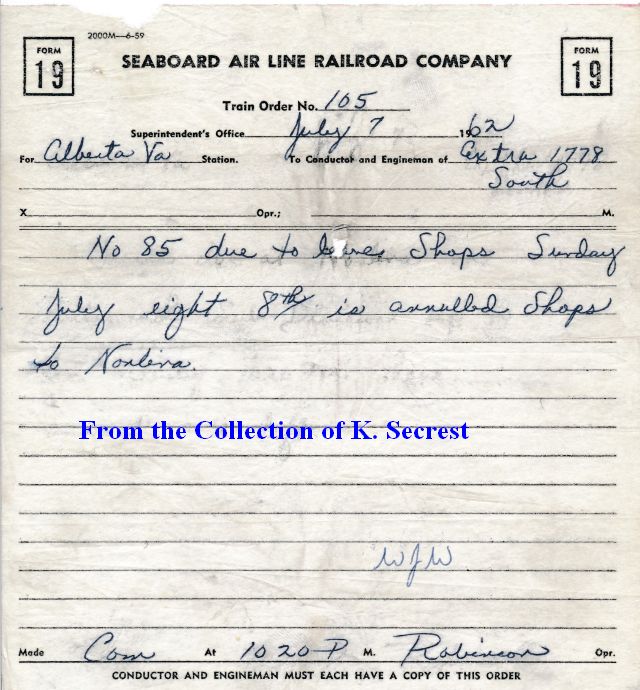 2000M—6-59
FORM 19
SEABOARD AIR LINE RAILROAD COMPANY
FORM 19
Train Order No. 105
Superintendent's Office July 7 1962
For Alberta Va Station. To Conductor and Engineman of Extra 1778
South
X Opr.; M.
No 85 due to leave Shops Sunday
July eight 8th is annulled Shops
to Norlina.
From the Collection of K. Secrest
WJW
Made Com At 1020 P M. Robinson Opr.
CONDUCTOR AND ENGINEMAN MUST EACH HAVE A COPY OF THIS ORDER